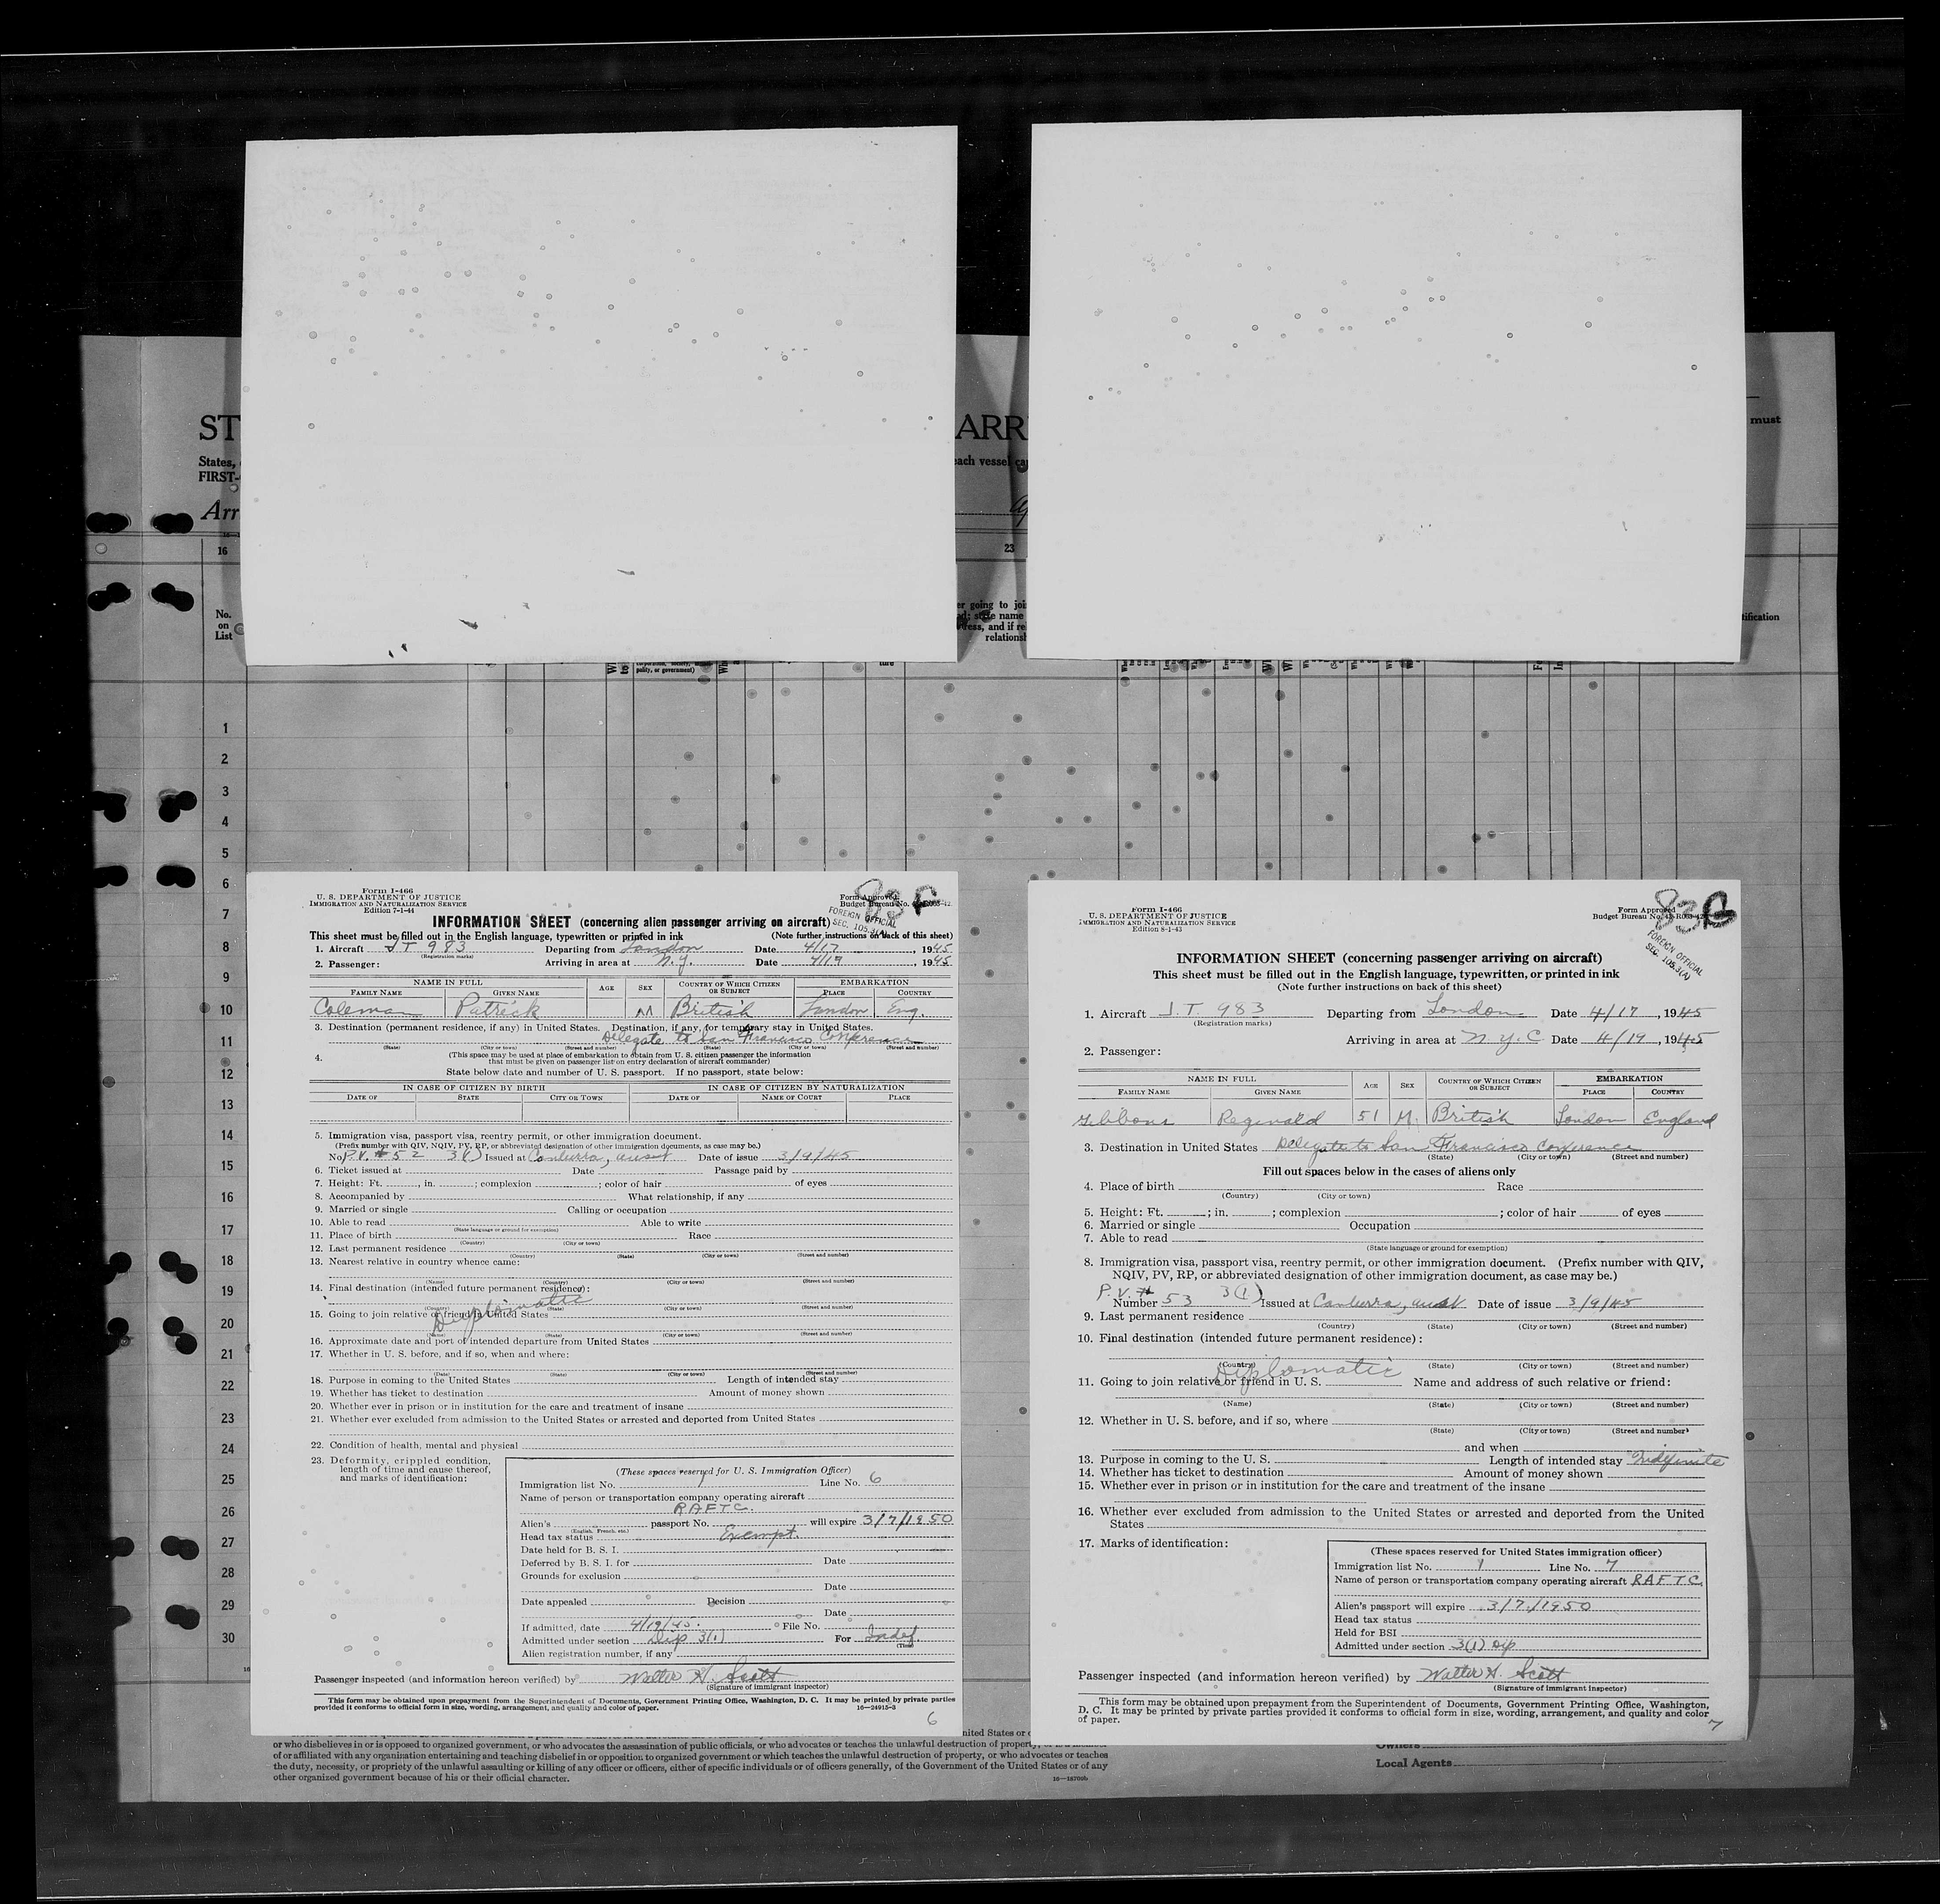 ST
ARR
must
States,
each vessel ca
FIRST-
Arr
16
23
er going to joi
No.
on
List
d; state name
ress, and if re
relationsh
tification
polity, or government)
ture
1
2
3
4
5
6
7
8
9
10
11
12
13
14
15
16
17
18
19
20
21
22
23
24
25
26
27
28
29
30
Form I-466
U. S. DEPARTMENT OF JUSTICE
IMMIGRATION AND NATURALIZATION SERVICE
Edition 7-1-44
Form Approved
Budget Bureau No.
83
FOREIGN OFFICIAL
SEC. 105.3(A)
INFORMATION SHEET (concerning alien passenger arriving on aircraft)
This sheet must be filled out in the English language, typewritten or printed in ink (Note further instructions on back of this sheet)
1. Aircraft JT 983 Departing from London Date 4/17, 1945
(Registration marks)
2. Passenger: Arriving in area at N.Y. Date 4/19, 1945
NAME IN FULL AGE SEX COUNTRY OF WHICH CITIZEN OR SUBJECT EMBARKATION
FAMILY NAME GIVEN NAME PLACE COUNTRY
Coleman Patrick M British London Eng.
3. Destination (permanent residence, if any) in United States. Destination, if any, for temporary stay in United States.
Delegate to San Francisco Conference
(State) (City or town) (Street and number) (State) (City or town) (Street and number)
4. (This space may be used at place of embarkation to obtain from U. S. citizen passenger the information
that must be given on passenger list on entry declaration of aircraft commander)
State below date and number of U. S. passport. If no passport, state below:
IN CASE OF CITIZEN BY BIRTH IN CASE OF CITIZEN BY NATURALIZATION
DATE OF STATE CITY OR TOWN DATE OF NAME OF COURT PLACE
5. Immigration visa, passport visa, reentry permit, or other immigration document.
(Prefix number with QIV, NQIV, PV, RP, or abbreviated designation of other immigration documents, as case may be.)
No. P.V. # 52 3(1) Issued at Canberra, Aust Date of issue 3/9/45
6. Ticket issued at Date Passage paid by
7. Height: Ft. , in. ; complexion ; color of hair of eyes
8. Accompanied by What relationship, if any
9. Married or single Calling or occupation
10. Able to read Able to write
(State language or ground for exemption)
11. Place of birth Race
(Country) (City or town)
12. Last permanent residence
(Country) (State) (City or town) (Street and number)
13. Nearest relative in country whence came:
(Name) (Country) (City or town) (Street and number)
14. Final destination (intended future permanent residence):
Diplomatic
(Country) (State) (City or town) (Street and number)
15. Going to join relative or friend in United States
(Name) (State) (City or town) (Street and number)
16. Approximate date and port of intended departure from United States
17. Whether in U. S. before, and if so, when and where:
(Date) (State) (City or town) (Street and number)
18. Purpose in coming to the United States Length of intended stay
19. Whether has ticket to destination Amount of money shown
20. Whether ever in prison or in institution for the care and treatment of insane
21. Whether ever excluded from admission to the United States or arrested and deported from United States
22. Condition of health, mental and physical
23. Deformity, crippled condition,
length of time and cause thereof,
and marks of identification:
(These spaces reserved for U. S. Immigration Officer)
Immigration list No. 1 Line No. 6
Name of person or transportation company operating aircraft
RAFTC.
Alien's passport No. will expire 3/7/1950
(English, French, etc.)
Head tax status Exempt.
Date held for B. S. I.
Deferred by B. S. I. for Date
Grounds for exclusion
Date
Date appealed Decision
Date
If admitted, date 4/19/45. File No.
Admitted under section Dip 3(1) For Indef
(Time)
Alien registration number, if any
Passenger inspected (and information hereon verified) by Walter H. Scott
(Signature of immigrant inspector)
This form may be obtained upon prepayment from the Superintendent of Documents, Government Printing Office, Washington, D. C. It may be printed by private parties
provided it conforms to official form in size, wording, arrangement, and quality and color of paper. 16—24915-3
6
Form I-466
U. S. DEPARTMENT OF JUSTICE
IMMIGRATION AND NATURALIZATION SERVICE
Edition 8-1-43
Form Approved
Budget Bureau No.
83
FOREIGN OFFICIAL
SEC. 105.3(A)
INFORMATION SHEET (concerning passenger arriving on aircraft)
This sheet must be filled out in the English language, typewritten, or printed in ink
(Note further instructions on back of this sheet)
1. Aircraft J.T. 983 Departing from London Date 4/17, 1945
(Registration marks)
Arriving in area at N.Y.C Date 4/19, 1945
2. Passenger:
NAME IN FULL AGE SEX COUNTRY OF WHICH CITIZEN OR SUBJECT EMBARKATION
FAMILY NAME GIVEN NAME PLACE COUNTRY
Gibbons Reginald 51 M. British London England
3. Destination in United States Delegate to San Francisco Conference
(State) (City or town) (Street and number)
Fill out spaces below in the cases of aliens only
4. Place of birth Race
(Country) (City or town)
5. Height: Ft. ; in. ; complexion ; color of hair of eyes
6. Married or single Occupation
7. Able to read
(State language or ground for exemption)
8. Immigration visa, passport visa, reentry permit, or other immigration document. (Prefix number with QIV,
NQIV, PV, RP, or abbreviated designation of other immigration document, as case may be.)
P.V. #
Number 53 3(1) Issued at Canberra, Aust Date of issue 3/9/45
9. Last permanent residence
(Country) (State) (City or town) (Street and number)
10. Final destination (intended future permanent residence):
Diplomatic
(Country) (State) (City or town) (Street and number)
11. Going to join relative or friend in U. S. Name and address of such relative or friend:
(Name) (State) (City or town) (Street and number)
12. Whether in U. S. before, and if so, where
(State) (City or town) (Street and number)
and when
13. Purpose in coming to the U. S. Length of intended stay Indefinite
14. Whether has ticket to destination Amount of money shown
15. Whether ever in prison or in institution for the care and treatment of the insane
16. Whether ever excluded from admission to the United States or arrested and deported from the United
States
17. Marks of identification:
(These spaces reserved for United States immigration officer)
Immigration list No. 1 Line No. 7
Name of person or transportation company operating aircraft RAFTC
Alien's passport will expire 3/7/1950
Head tax status
Held for BSI
Admitted under section 3(1) Dip
Passenger inspected (and information hereon verified) by Walter H. Scott
(Signature of immigrant inspector)
This form may be obtained upon prepayment from the Superintendent of Documents, Government Printing Office, Washington,
D. C. It may be printed by private parties provided it conforms to official form in size, wording, arrangement, and quality and color
of paper.
7
nited States or
or who disbelieves in or is opposed to organized government, or who advocates the assassination of public officials, or who advocates or teaches the unlawful destruction of property,
of or affiliated with any organization entertaining and teaching disbelief in or opposition to organized government or which teaches the unlawful destruction of property, or who advocates or teaches
the duty, necessity, or propriety of the unlawful assaulting or killing of any officer or officers, either of specific individuals or of officers generally, of the Government of the United States or of any
other organized government because of his or their official character.
Owners
Local Agents